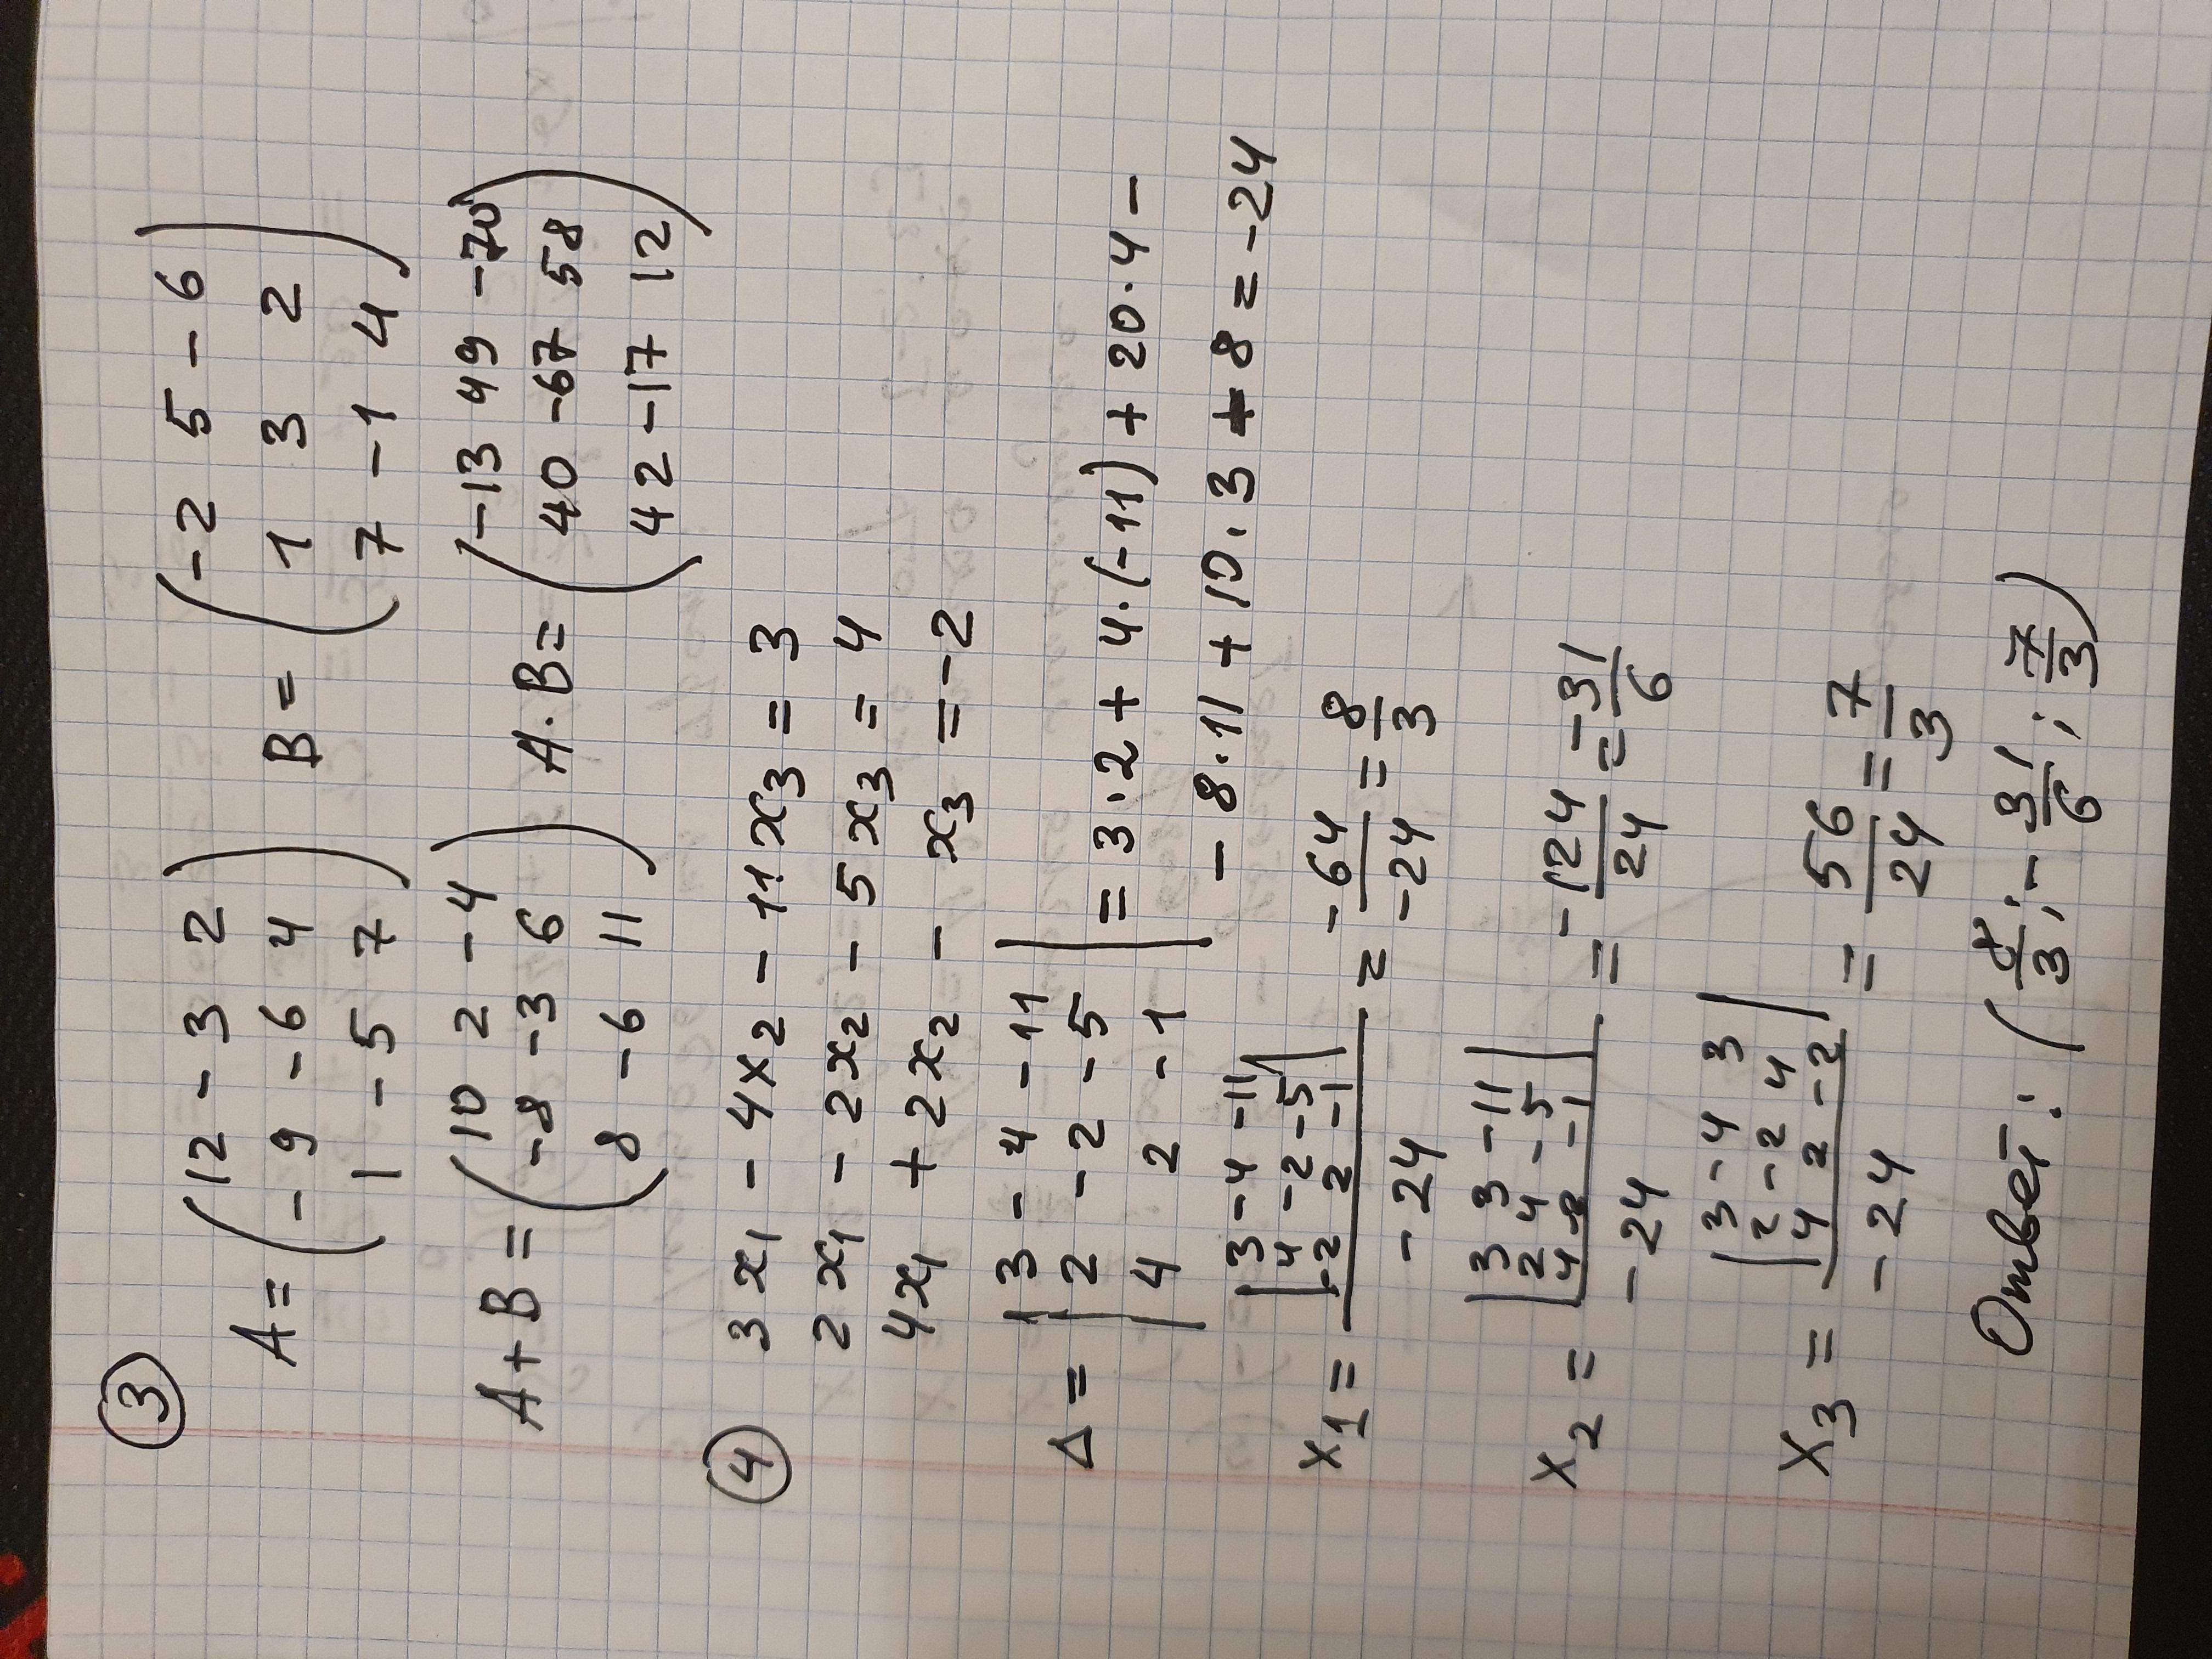 ③
A = ( 12 -3 2     B = ( -2 5 -6
-9 -6 4     1 3 2
1 -5 7 )     7 -1 4 )
A+B = ( 10 2 -4     A·B = ( -13 49 -70
-8 -3 6     40 -67 58
8 -6 11 )     42 -17 12 )
④ 3x₁ - 4x₂ - 11x₃ = 3
2x₁ - 2x₂ - 5x₃ = 4
4x₁ + 2x₂ - x₃ = -2
Δ = | 3 -4 -11
2 -2 -5
4 2 -1 | = 3·2 + 4·(-11) + 20·4 -
- 8·11 + 10·3 + 8 = -24
x₁ = | 3 -4 -11
4 -2 -5
-2 2 -1 | / -24 = -64/-24 = 8/3
x₂ = | 3 3 -11
2 4 -5
4 -2 -1 | / -24 = -124/24 = -31/6
x₃ = | 3 -4 3
2 -2 4
4 2 -2 | / -24 = 56/24 = 7/3
Ответ: ( /3; -31/6; 7/3)